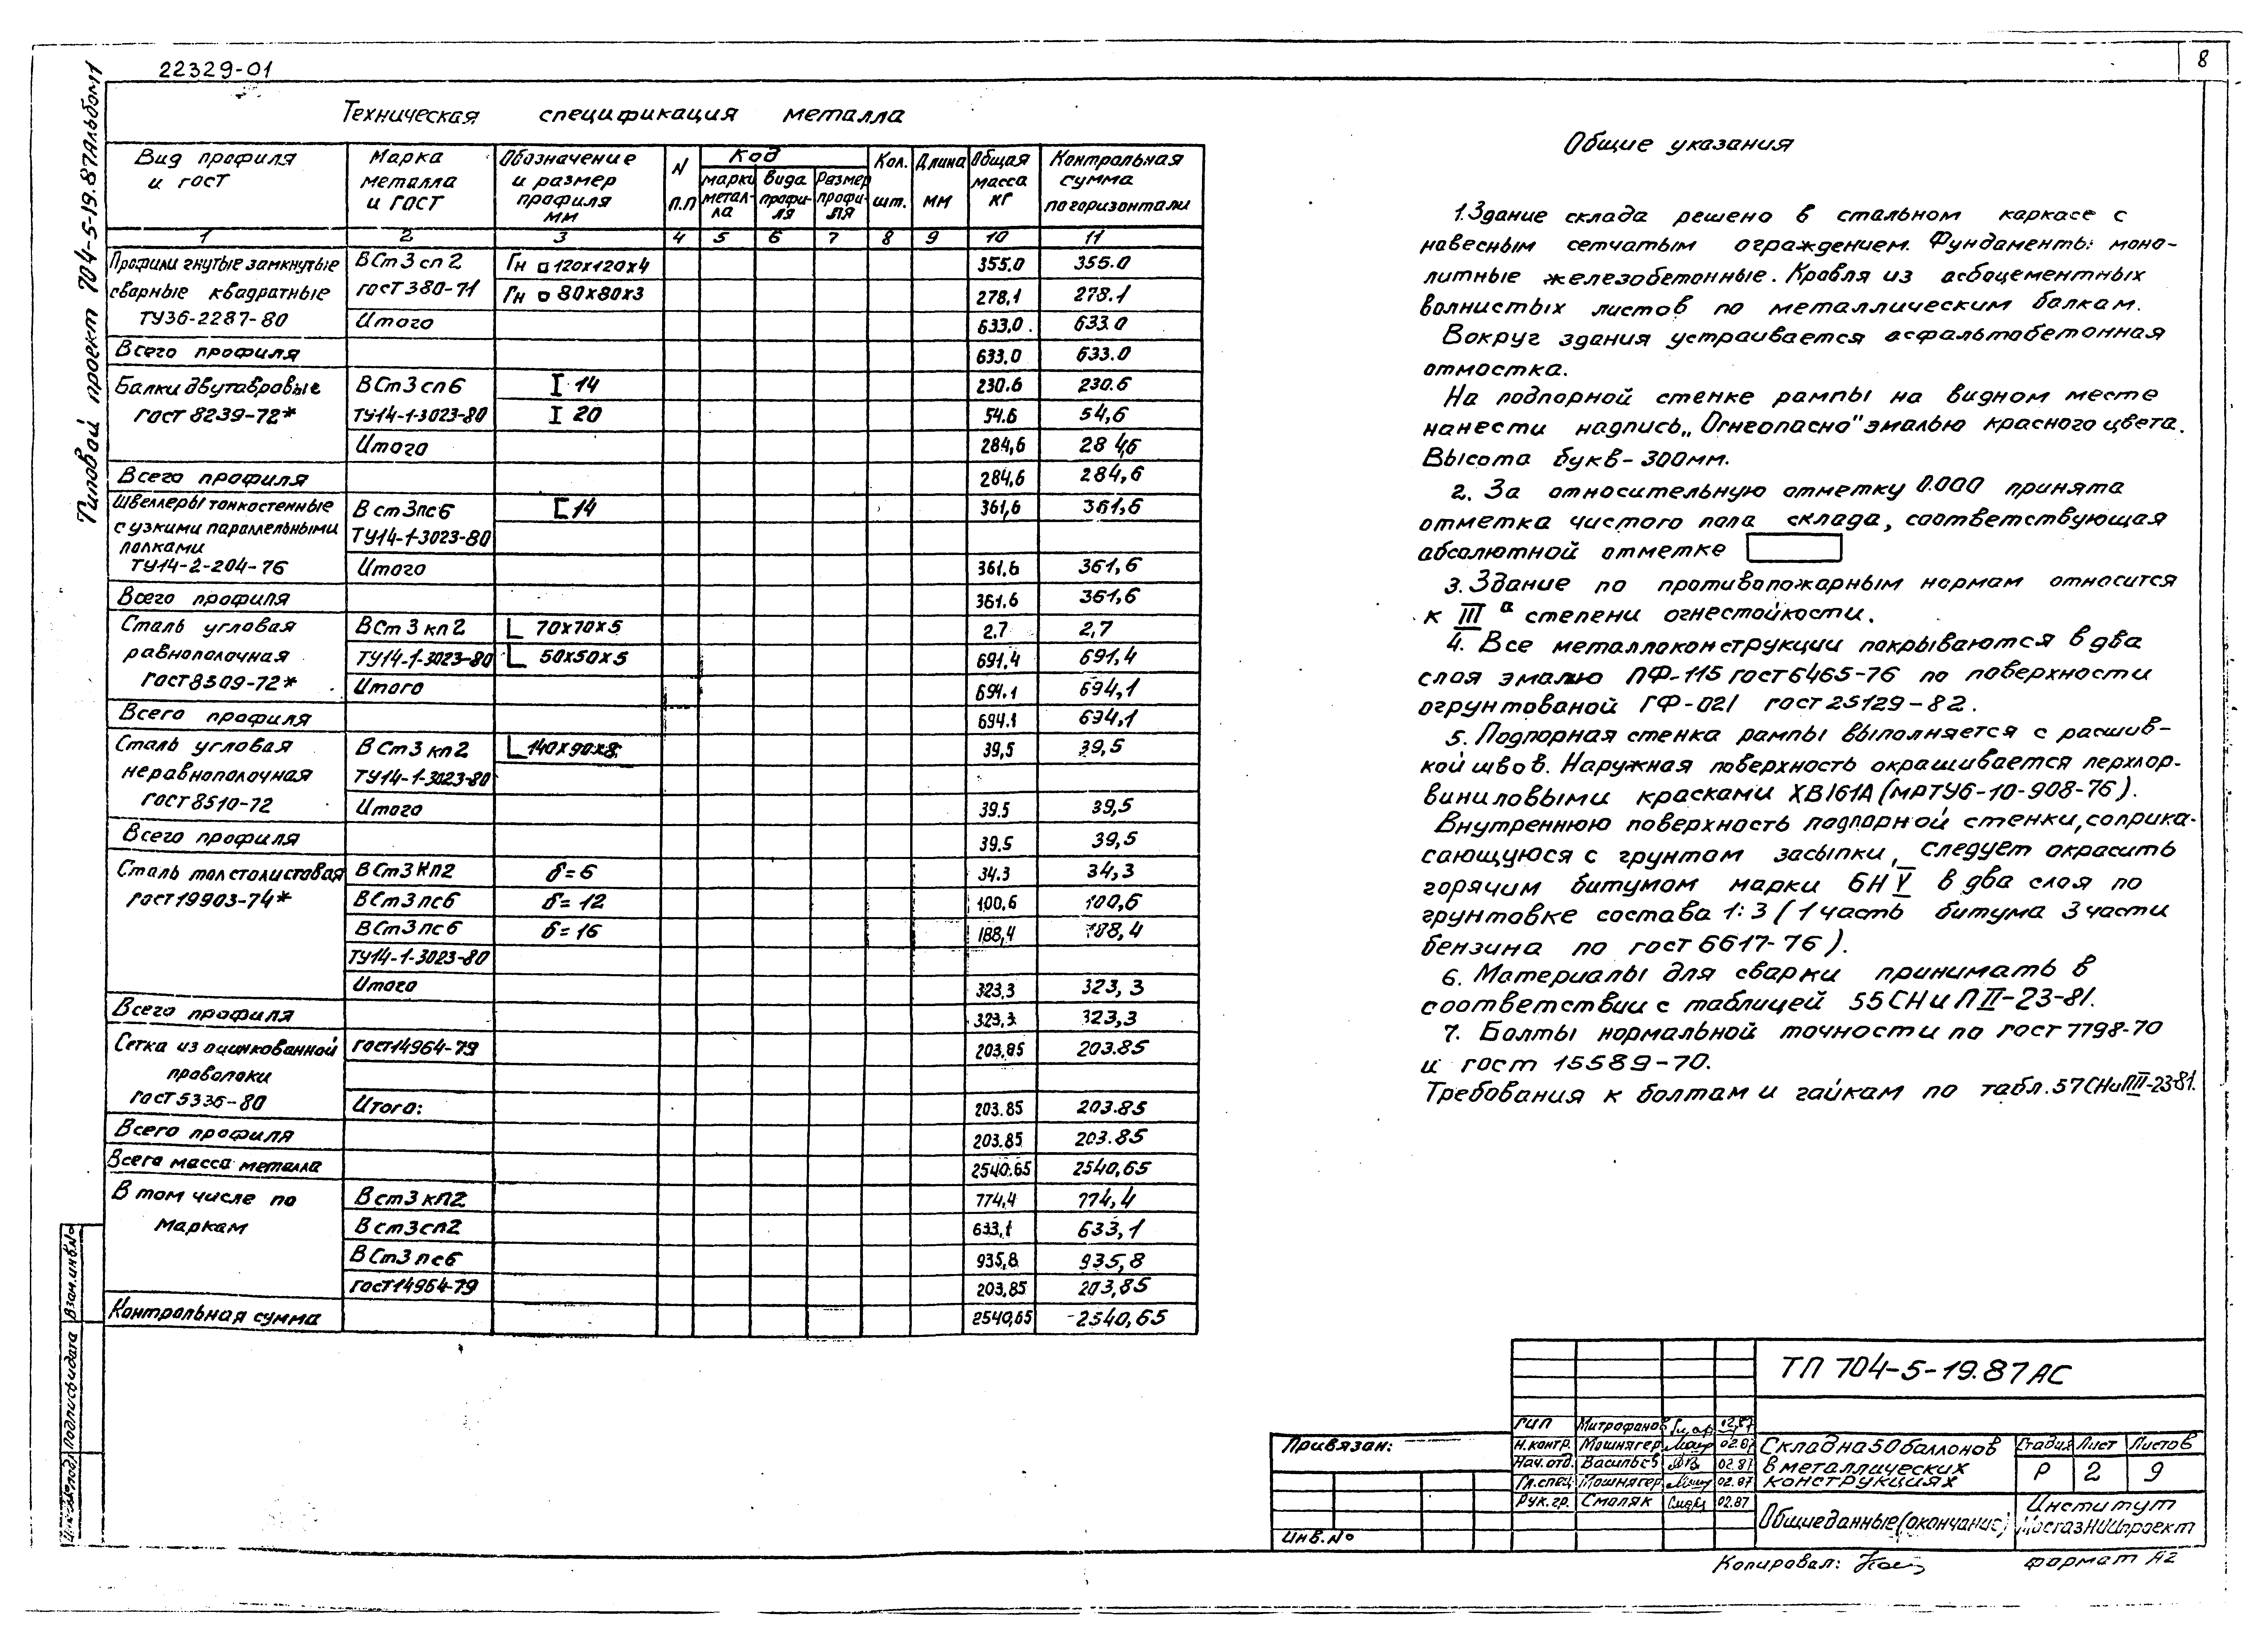 22329-01
8
Типовой проект 704-5-19.87 Альбом 1
Техническая спецификация металла
Вид профиля и гост | Марка металла и гост | Обозначение и размер профиля мм | N п.п | Код | Кол. шт. | Длина мм | Общая масса кг | Контрольная сумма по горизонтали
марки метал-ла | вида профи-ля | Размер профи-ля
1 2 3 4 5 6 7 8 9 10 11
Профили гнутые замкнутые ВСт3сп2 Гн □ 120х120х4 355.0 355.0
сварные квадратные гост 380-71 Гн □ 80х80х3 278,1 278.1
ТУ36-2287-80 Итого 633,0 633.0
Всего профиля 633.0 633.0
Балки двутавровые ВСт3сп6 I 14 230.6 230.6
гост 8239-72* ТУ14-1-3023-80 I 20 54.6 54,6
Итого 284,6 284,6
Всего профиля 284,6 284,6
Швеллеры тонкостенные Вст3пс6 [ 14 361,6 361,6
с узкими параллельными ТУ14-1-3023-80
полками
ТУ14-2-204-76 Итого 361.6 361,6
Всего профиля 361.6 361,6
Сталь угловая ВСт3кп2 L 70х70х5 2.7 2,7
равнополочная ТУ14-1-3023-80 L 50х50х5 691,4 691,4
гост 8509-72* Итого 694.1 694,1
Всего профиля 694.1 694,1
Сталь угловая ВСт3кп2 L 140х90х8 39,5 39,5
неравнополочная ТУ14-1-3023-80
гост 8510-72 Итого 39.5 39,5
Всего профиля 39.5 39,5
Сталь толстолистовая ВСт3кп2 δ=6 34.3 34,3
гост 19903-74* ВСт3пс6 δ=12 100,6 100,6
ВСт3пс6 δ=16 188,4 188,4
ТУ14-1-3023-80
Итого 323,3 323,3
Всего профиля 323,3 323,3
Сетка из оцинкованной гост14964-79 203,85 203.85
проволоки
гост 5336-80 Итого: 203.85 203.85
Всего профиля 203.85 203.85
Всего масса металла 2540.65 2540,65
В том числе по Вст3кп2 774,4 774,4
маркам Вст3сп2 633,1 633,1
ВСт3пс6 935,8 935,8
гост14964-79 203,85 203,85
Контрольная сумма 2540,65 2540,65
Общие указания
1. Здание склада решено в стальном каркасе с
навесным сетчатым ограждением. Фундаменты: моно-
литные железобетонные. Кровля из асбоцементных
волнистых листов по металлическим балкам.
Вокруг здания устраивается асфальтобетонная
отмостка.
На подпорной стенке рампы на видном месте
нанести надпись „Огнеопасно" эмалью красного цвета.
Высота букв - 300мм.
2. За относительную отметку 0.000 принята
отметка чистого пола склада, соответствующая
абсолютной отметке
3. Здание по противопожарным нормам относится
к IIIа степени огнестойкости.
4. Все металлоконструкции покрываются в два
слоя эмалью ПФ-115 гост 6465-76 по поверхности
огрунтованой ГФ-021 гост 25129-82.
5. Подпорная стенка рампы выполняется с расшив-
кой швов. Наружная поверхность окрашивается перхлор-
виниловыми красками ХВ161А (МРТУ6-10-908-76).
Внутреннюю поверхность подпорной стенки, соприка-
сающуюся с грунтом засыпки, следует окрасить
горячим битумом марки БН V в два слоя по
грунтовке состава 1:3 (1 часть битума 3 части
бензина по гост 6617-76).
6. Материалы для сварки принимать в
соответствии с таблицей 55 СНиП II-23-81.
7. Болты нормальной точности по гост 7798-70
и гост 15589-70.
Требования к болтам и гайкам по табл. 57 СНиП II-23-81.
Взам.инв.№
Подпись и дата
Инв.№подл
ТП 704-5-19.87 АС
Привязан:
Инв.№
ГИП Митрофанов 02.87
Н.контр. Мошнягер 02.87
Нач.отд. Васильев 02.87
Гл.спец Мошнягер 02.87
Рук.гр. Смоляк 02.87
Склад на 50 баллонов
в металлических
конструкциях
Стадия Лист Листов
Р 2 9
Общие данные (окончание)
Институт
МосгазНИИпроект
Копировал:
формат А2